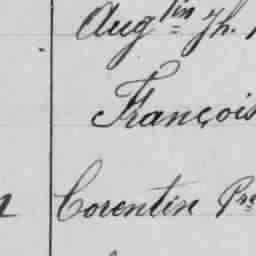 Augtin Jh.
François
Corentin Pre